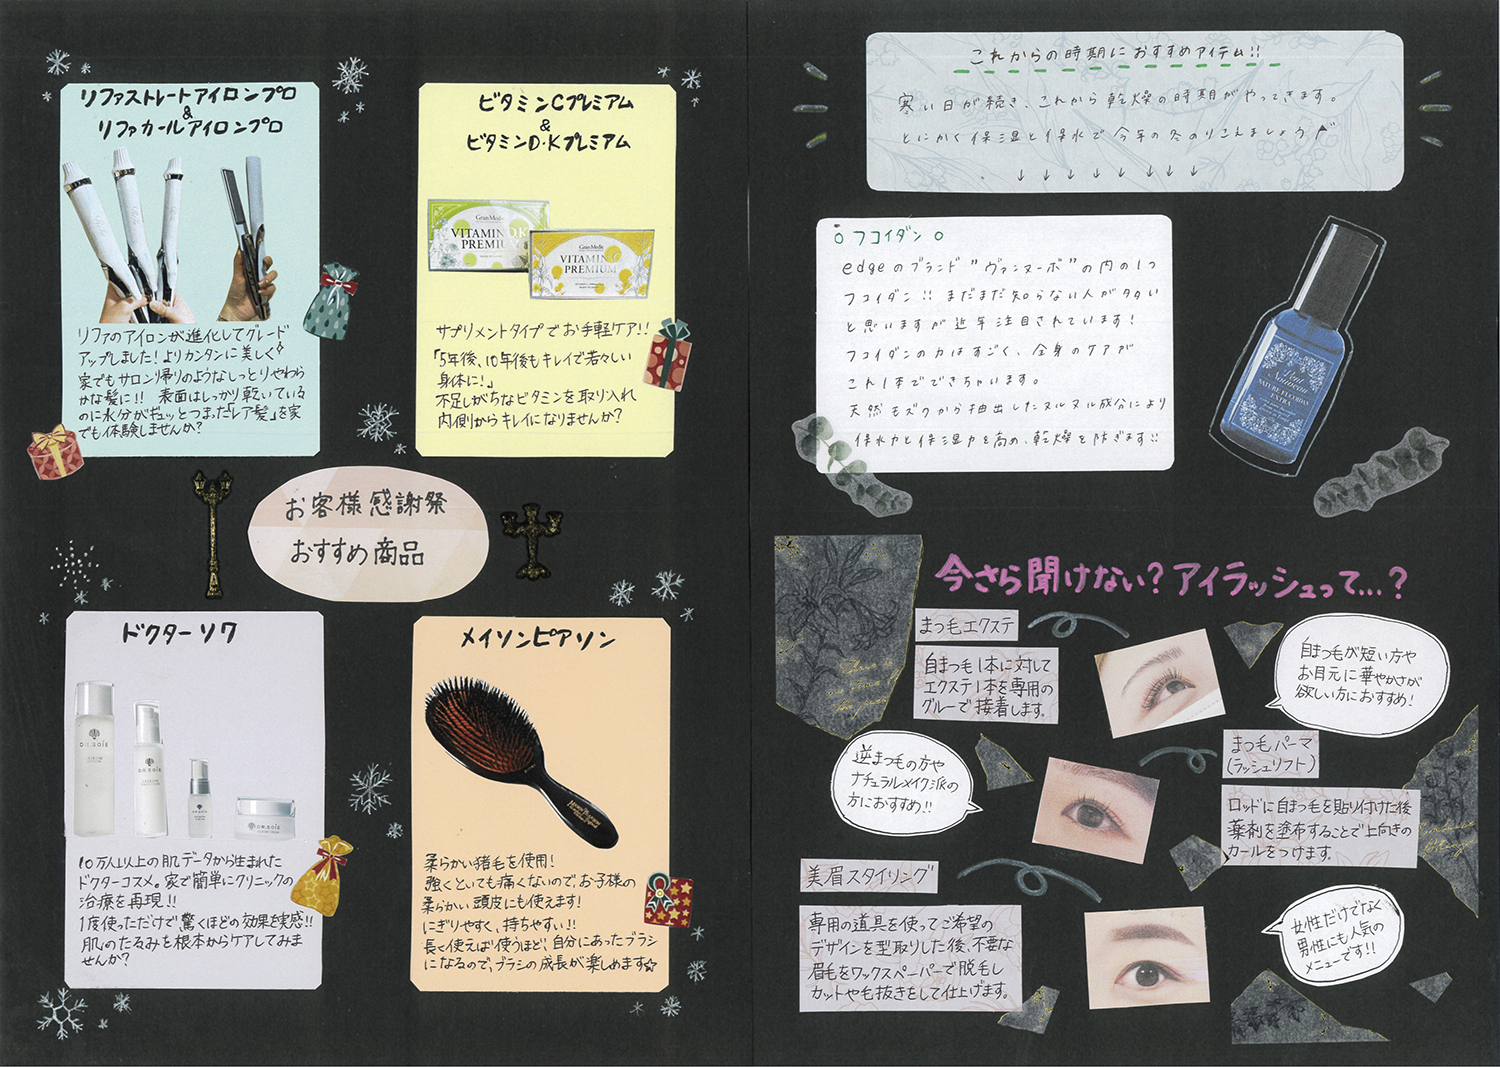 リファストレートアイロンプロ
&
リファカールアイロンプロ
リファのアイロンが進化してグレード
アップしました!よりカンタンに美しく
家でもサロン帰りのようなしっとりやわら
かな髪に!! 表面はしっかり乾いている
のに水分がギュッとつまった「レア髪」を家
でも体験しませんか?
ビタミンCプレミアム
&
ビタミンD・Kプレミアム
GranMedic
VITAMIN D.K
PREMIUM
GranMedic
VITAMIN C
PREMIUM
サプリメントタイプでお手軽ケア!!
「5年後、10年後もキレイで若々しい
身体に!」
不足しがちなビタミンを取り入れ
内側からキレイになりませんか?
お客様感謝祭
おすすめ商品
ドクターソワ
DR.SOIE
DR.SOIE
DR.SOIE
10万人以上の肌データから生まれた
ドクターコスメ。家で簡単にクリニックの
治療を再現!!
1度使っただけで、驚くほどの効果を実感!!
肌のたるみを根本からケアしてみま
せんか?
メイソンピアソン
MASON PEARSON
柔らかい猪毛を使用!
強くといても痛くないので、お子様の
柔らかい頭皮にも使えます!
にぎりやすく、持ちやすい!!
長く使えば使うほど、自分にあったブラシ
になるので、ブラシの成長が楽しめます☆
これからの時期におすすめアイテム!!
寒い日が続き、これから乾燥の時期がやってきます。
とにかく保湿と保水で今年の冬のりこえましょう
↓ ↓ ↓ ↓ ↓ ↓ ↓ ↓
○フコイダン○
edgeのブランド"ヴァンヌーボ"の内の1つ
フコイダン!! まだまだ知らない人が多い
と思いますが近年注目されています!
フコイダンの力はすごく、全身のケアが
これ1本でできちゃいます。
天然モズクから抽出したヌルヌル成分により
保水力と保湿力を高め、乾燥を防ぎます!!
Vent Nouveau
NATURE FUCOIDAN
EXTRA
今さら聞けない?アイラッシュって…?
まつ毛エクステ
自まつ毛1本に対して
エクステ1本を専用の
グルーで接着します。
自まつ毛が短い方や
お目元に華やかさが
欲しい方におすすめ!
逆まつ毛の方や
ナチュラルメイク派の
方におすすめ!!
まつ毛パーマ
(ラッシュリフト)
ロッドに自まつ毛を貼り付けた後
薬剤を塗布することで上向きの
カールをつけます。
美眉スタイリング
専用の道具を使ってご希望の
デザインを型取りした後、不要な
眉毛をワックスペーパーで脱毛し
カットや毛抜きをして仕上げます。
女性だけでなく
男性にも人気の
メニューです!!